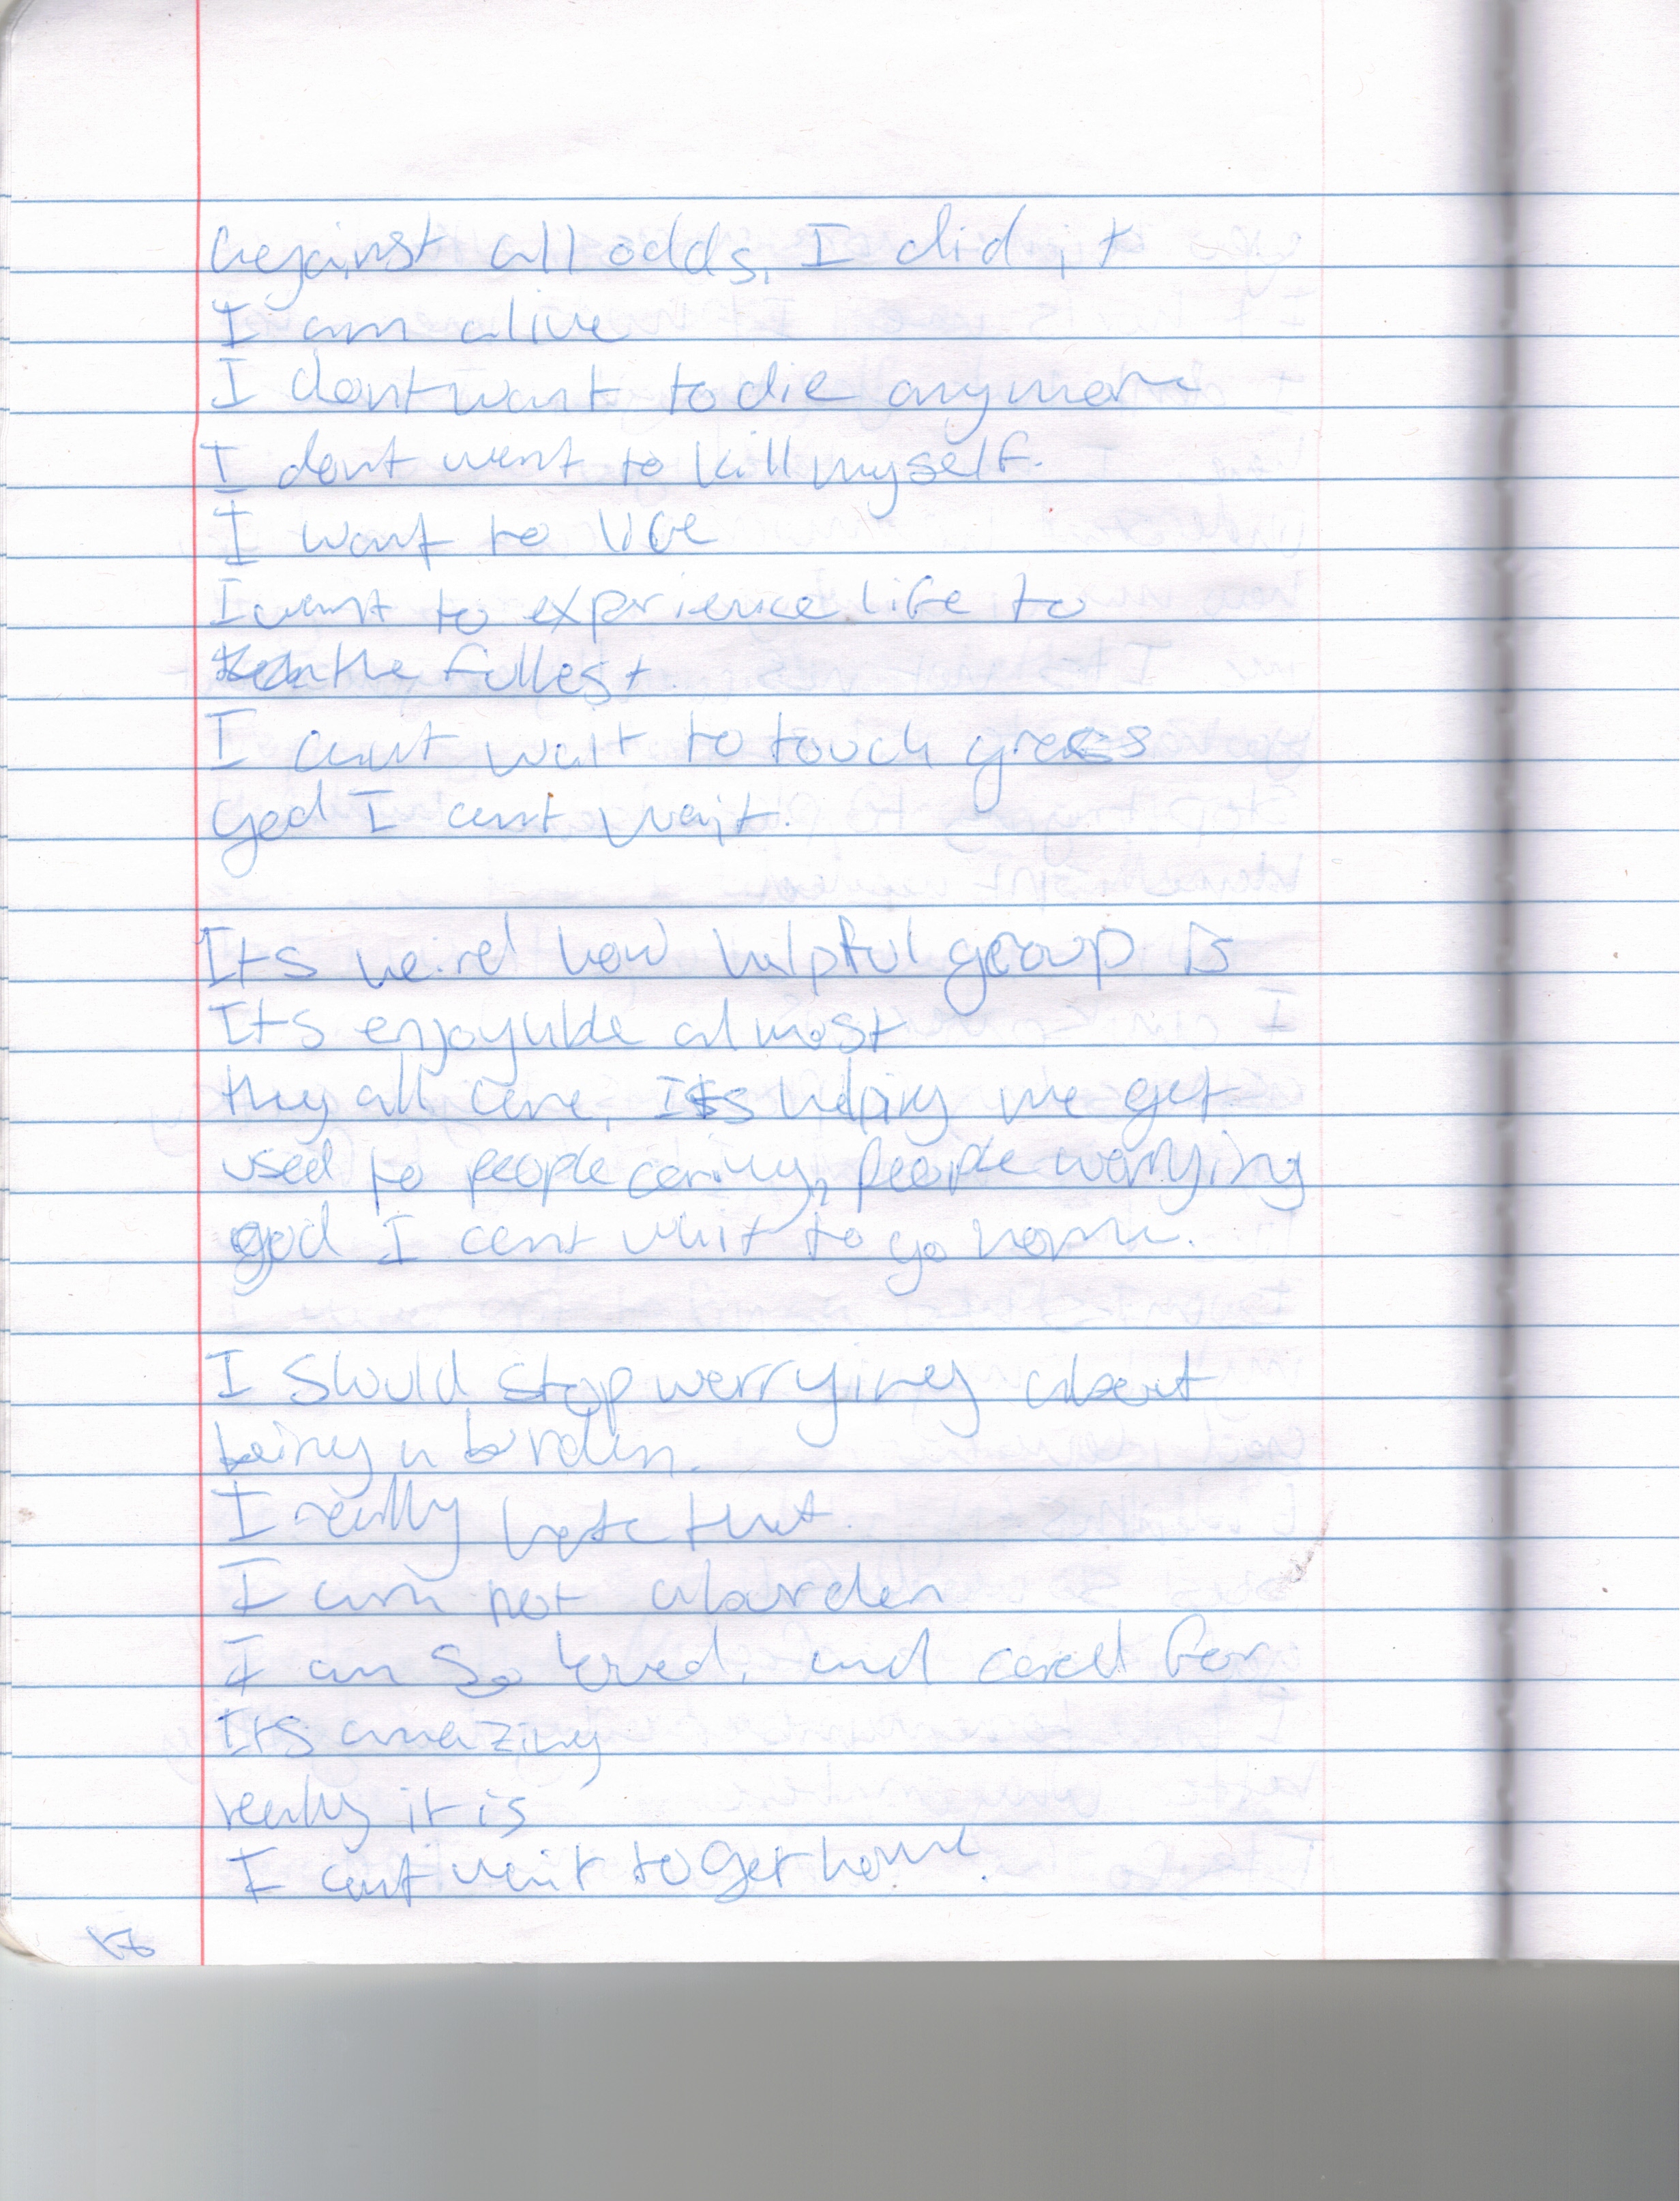 Against all odds, I did it
I am alive
I dont want to die anymore
I dont want to kill myself.
I want to live
I want to experience life to
the fullest.
I cant wait to touch grass
god I cant wait.
Its weird how helpful group is
Its enjoyable almost
they all care, Its helping me get
used to people caring, people worrying
god I cant wait to go home.
I should stop worrying about
being a burden.
I really hate that.
I am not a burden
I am so loved, and cared for
Its amazing
really it is
I cant wait to get home.